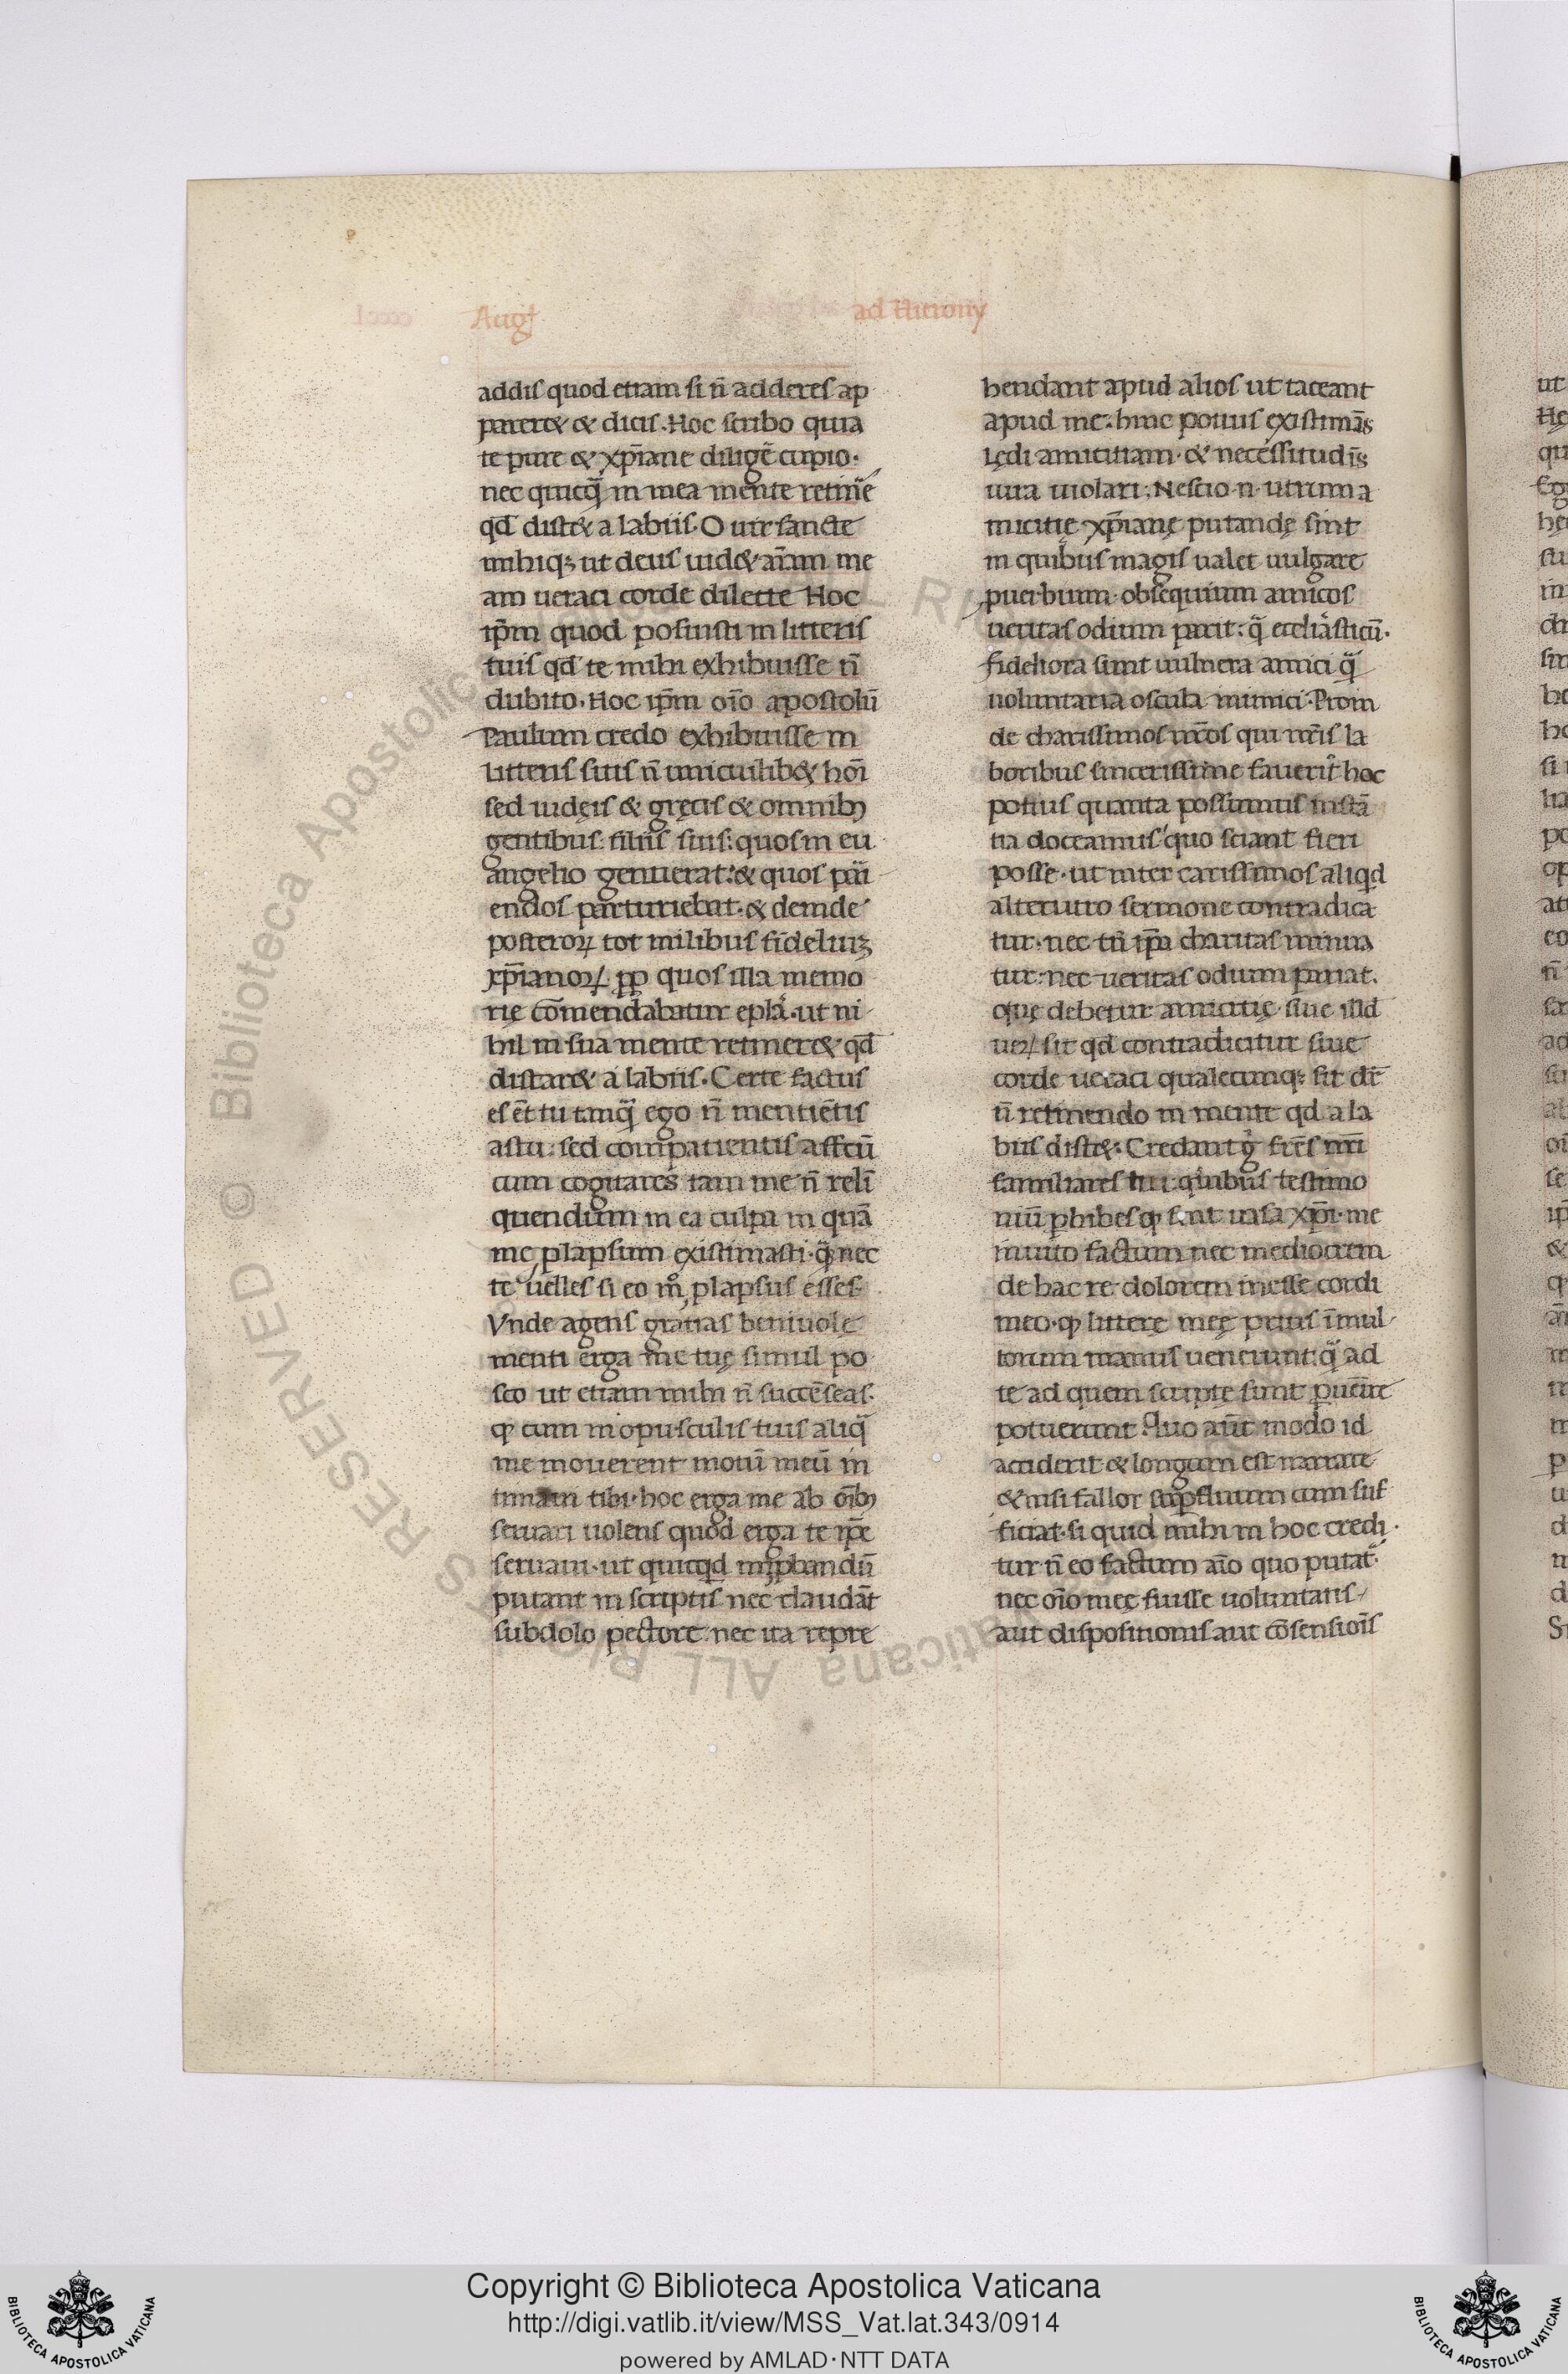 Augͥ ad Hierony
addis quod etiam si n̄ adderes ap
parer& & dicis. Hoc scribo quia
te pure & xp̄iane diligē cupio.
nec quicq̄ in mea mente retinē
qd̄ dist& a labiis. O uir sancte
mihiq; ut deus uid& an̄am me
am ueraci corde dilecte Hoc
ip̄m quod posuisti in litteris
tuis qd̄ te mihi exhibuisse n̄
dubito. Hoc ip̄m oīo apostolū
Paulum credo exhibuisse in
litteris suis n̄ unicuilib& hoī
sed iudęis & gręcis & omnib;
gentibus: filiis suis: quos in eu
angelio genuerat: & quos pari
endos parturiebat. & deinde
posteroꝝ tot milibus fideliuꝫ
xp̄ianoꝝ ꝓp quos illa memo
rię cōmendabatur epl̄a. ut ni
hil in sua mente retiner& qd̄
distar& a labiis. Certe factus
es ēt tu tanq̄ ego n̄ mentiētis
astu: sed compatientis affectū
cum cogitares tam me n̄ reli
quendum in ea culpa in quā
me plapsum existimasti. q̄ nec
te uelles si eo m̊ plapsus esses.
Vnde agens gratias beniuole
menti erga me tuę simul po
sco ut etiam mihi n̄ succēseas.
ꝙ cum in opusculis tuis aliq̄
me mouerent motū meū in
timam tibi. hoc erga me ab oīb;
seruari uolens quod erga te ip̄e
seruaui. ut quicqd imꝓbandū
putant in scriptis nec claudāt
subdolo pectore. nec ita repre
hendant apud alios ut taceant
apud me. hinc potius existimās
lędi amicitiam. & necessitudīs
iura uiolari. Nescio. n. utrum a
micitię xp̄ianę putandę sint
in quibus magis ualet uulgare
puerbium. obsequium amicos
ueritas odium parit: q̄ eccl̄iasticū.
fideliora sunt uulnera amici q̄
uoluntaria oscula inimici. Proin
de charissimos nr̄os qui nr̄is la
boribus sincerissime fauerīt hoc
potius quanta possumus instā
tia doceamus quo sciant fieri
posse. ut inter carissimos aliqd
alterutro sermone contradica
tur. nec tn̄ ip̄a charitas minua
tur: nec ueritas odium pariat.
quę debetur amicitię. siue illd
ueꝝ sit qd contradicitur siue
corde ueraci qualecunq; sit dr̄
n̄ retinendo in mente qd a la
biis dist&. Credant g̊ fr̄es nr̄i
familiares tui quibus testimo
niū phibes ꝙ sunt uasa xp̄i. me
inuito factum nec mediocrem
de hac re dolorem inesse cordi
meo. ꝙ litterę meę prius ī mul
torum manus uenerunt: q̄ ad
te ad quem scriptę sunt puēire
potuerunt. Quo aūt modo id
acciderit & longum est narrare
& nisi fallor supfluum cum suf
ficiat. si quid mihi in hoc credi
tur n̄ eo factum aīo quo putat̄.
nec oīo meę fuisse uoluntatis
aut dispositionis aut cōsensioīs
Copyright © Biblioteca Apostolica Vaticana
http://digi.vatlib.it/view/MSS_Vat.lat.343/0914
powered by AMLAD·NTT DATA